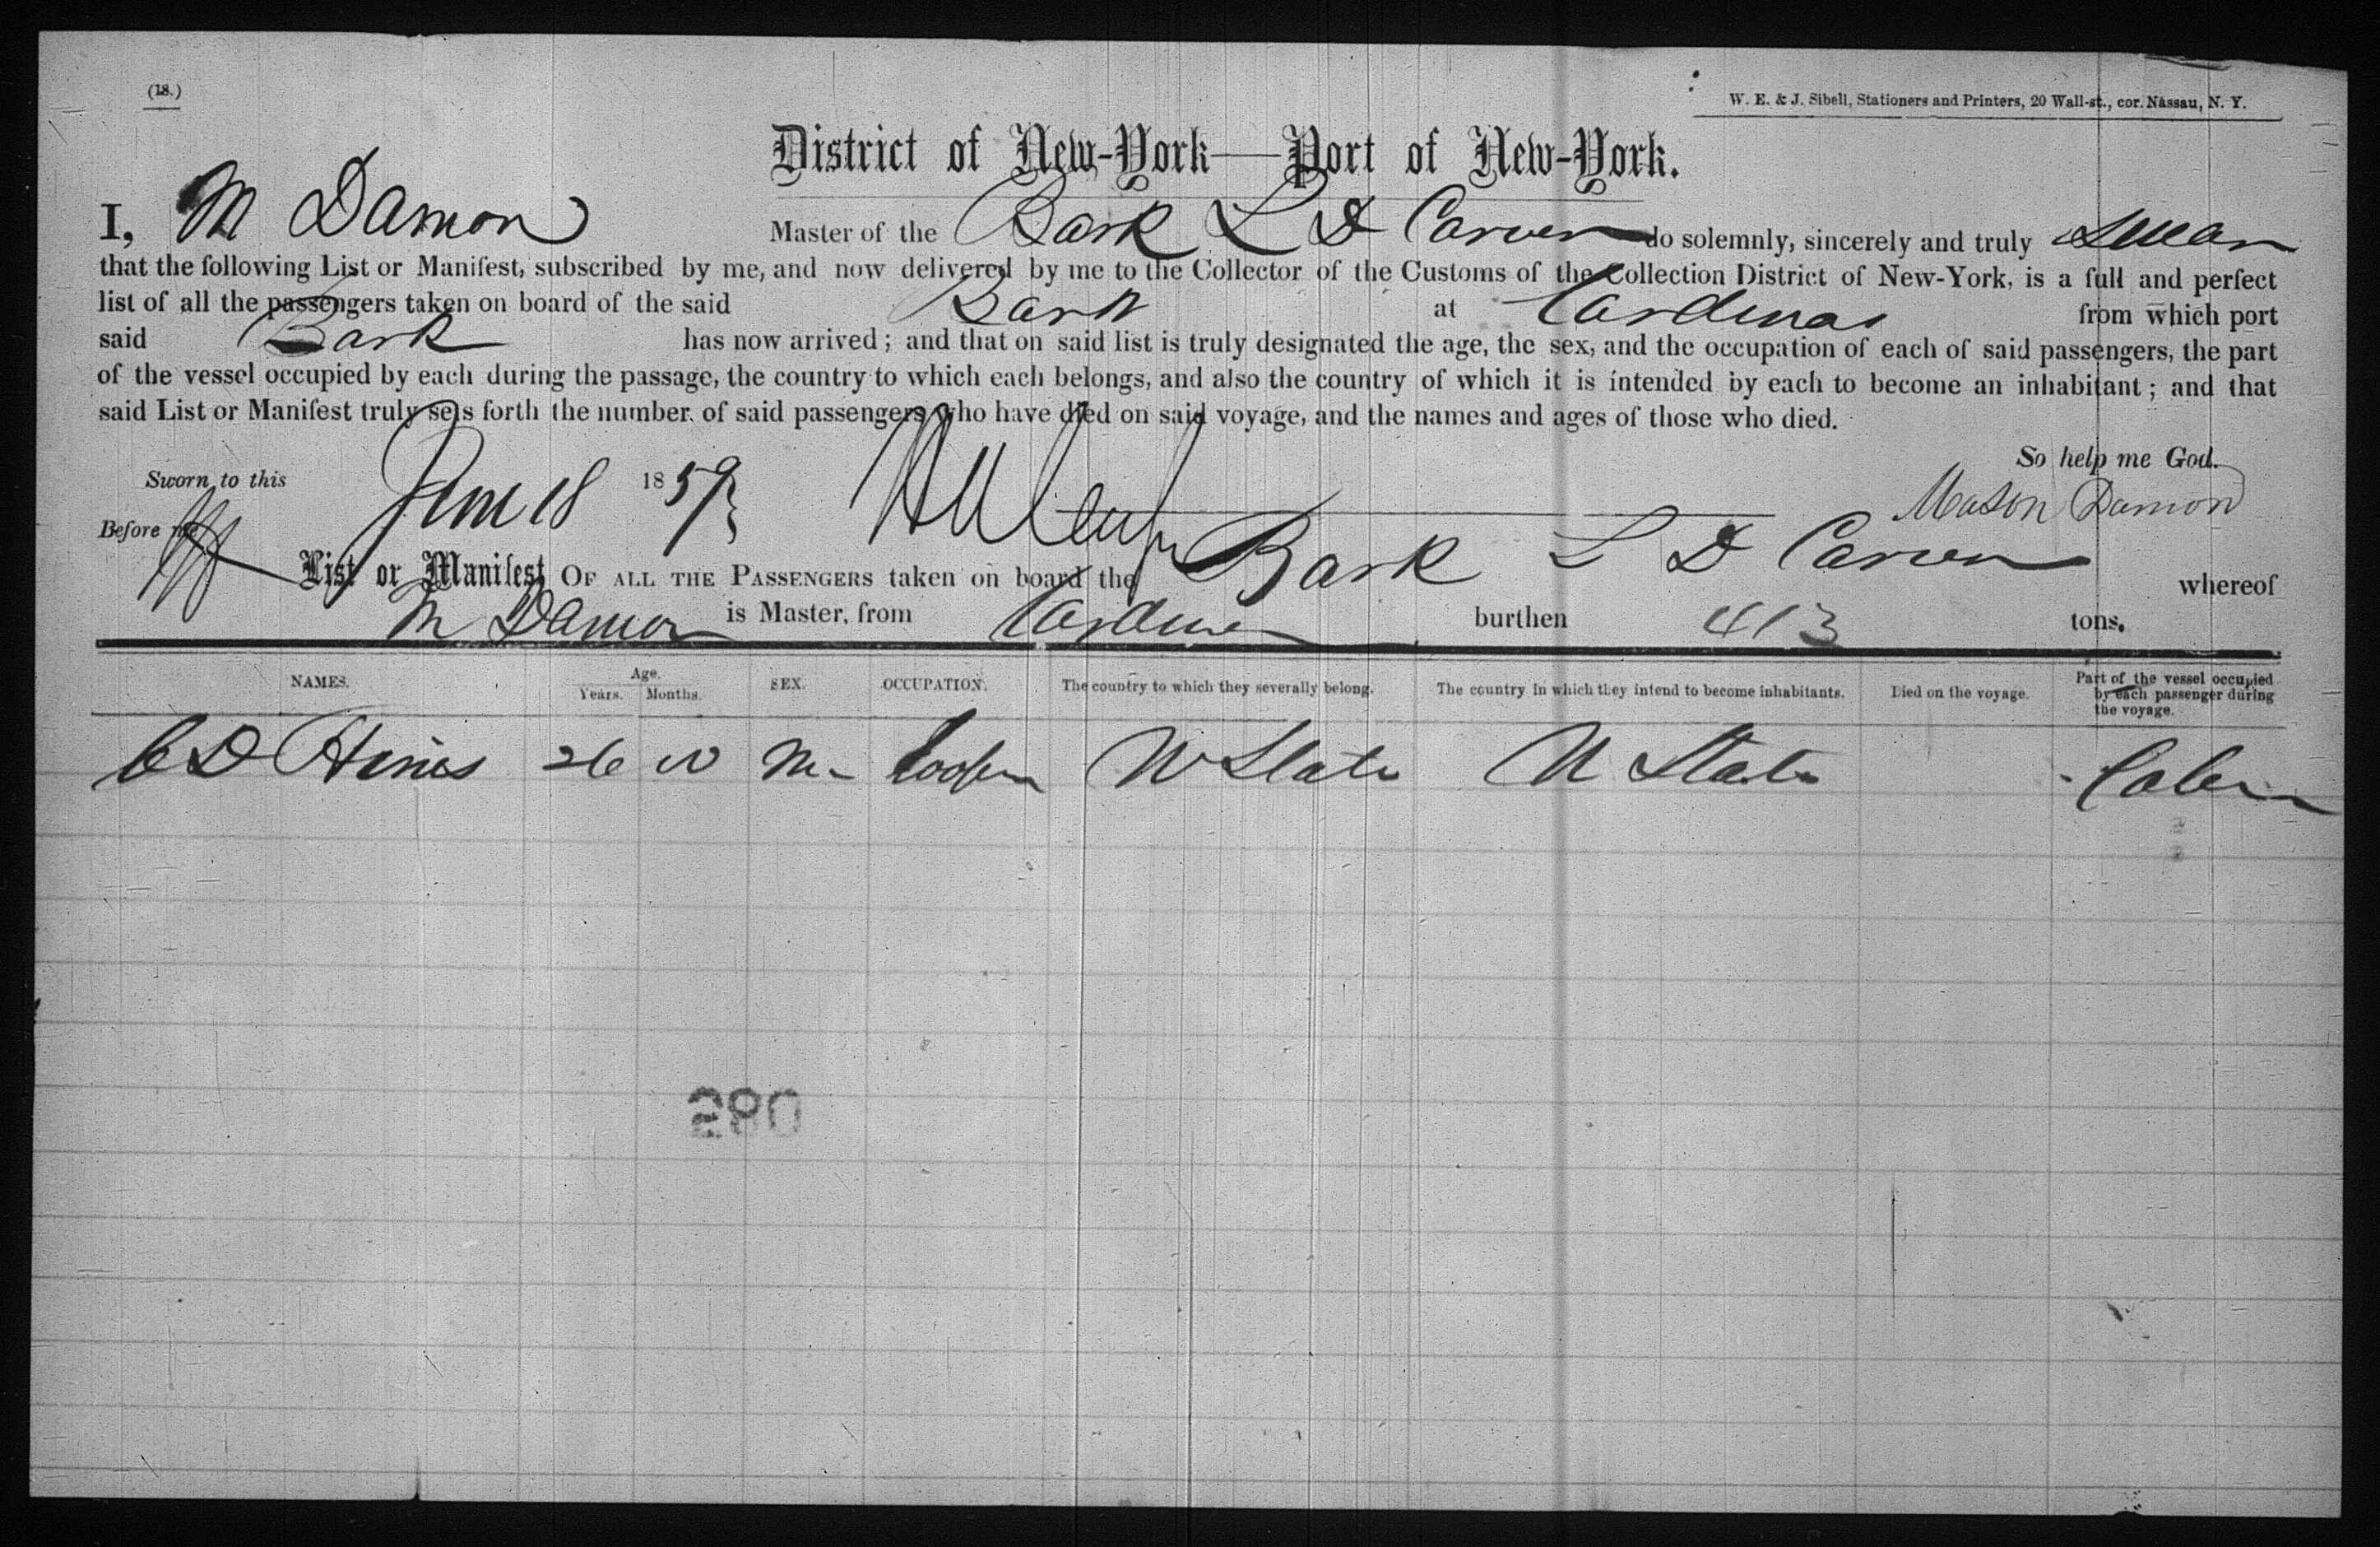 (18.)
W. E. & J. Sibell, Stationers and Printers, 20 Wall-st., cor. Nassau, N. Y.
District of New-York—Port of New-York.
I, M Damon Master of the Bark L D Carver do solemnly, sincerely and truly swear
that the following List or Manifest, subscribed by me, and now delivered by me to the Collector of the Customs of the Collection District of New-York, is a full and perfect
list of all the passengers taken on board of the said Bark at Cardenas from which port
said Bark has now arrived; and that on said list is truly designated the age, the sex, and the occupation of each of said passengers, the part
of the vessel occupied by each during the passage, the country to which each belongs, and also the country of which it is intended by each to become an inhabitant; and that
said List or Manifest truly sets forth the number of said passengers who have died on said voyage, and the names and ages of those who died.
So help me God.
Sworn to this June 18 1859
Mason Damon
Before me
List or Manifest OF ALL THE PASSENGERS taken on board the Bark L D Carver whereof
M Damon is Master, from Cardenas burthen 413 tons.
NAMES. Age. Years. Months. SEX. OCCUPATION. The country to which they severally belong. The country in which they intend to become inhabitants. Died on the voyage. Part of the vessel occupied by each passenger during the voyage.
C D Hines 26 10 M Cooper U States U States Cabin
280